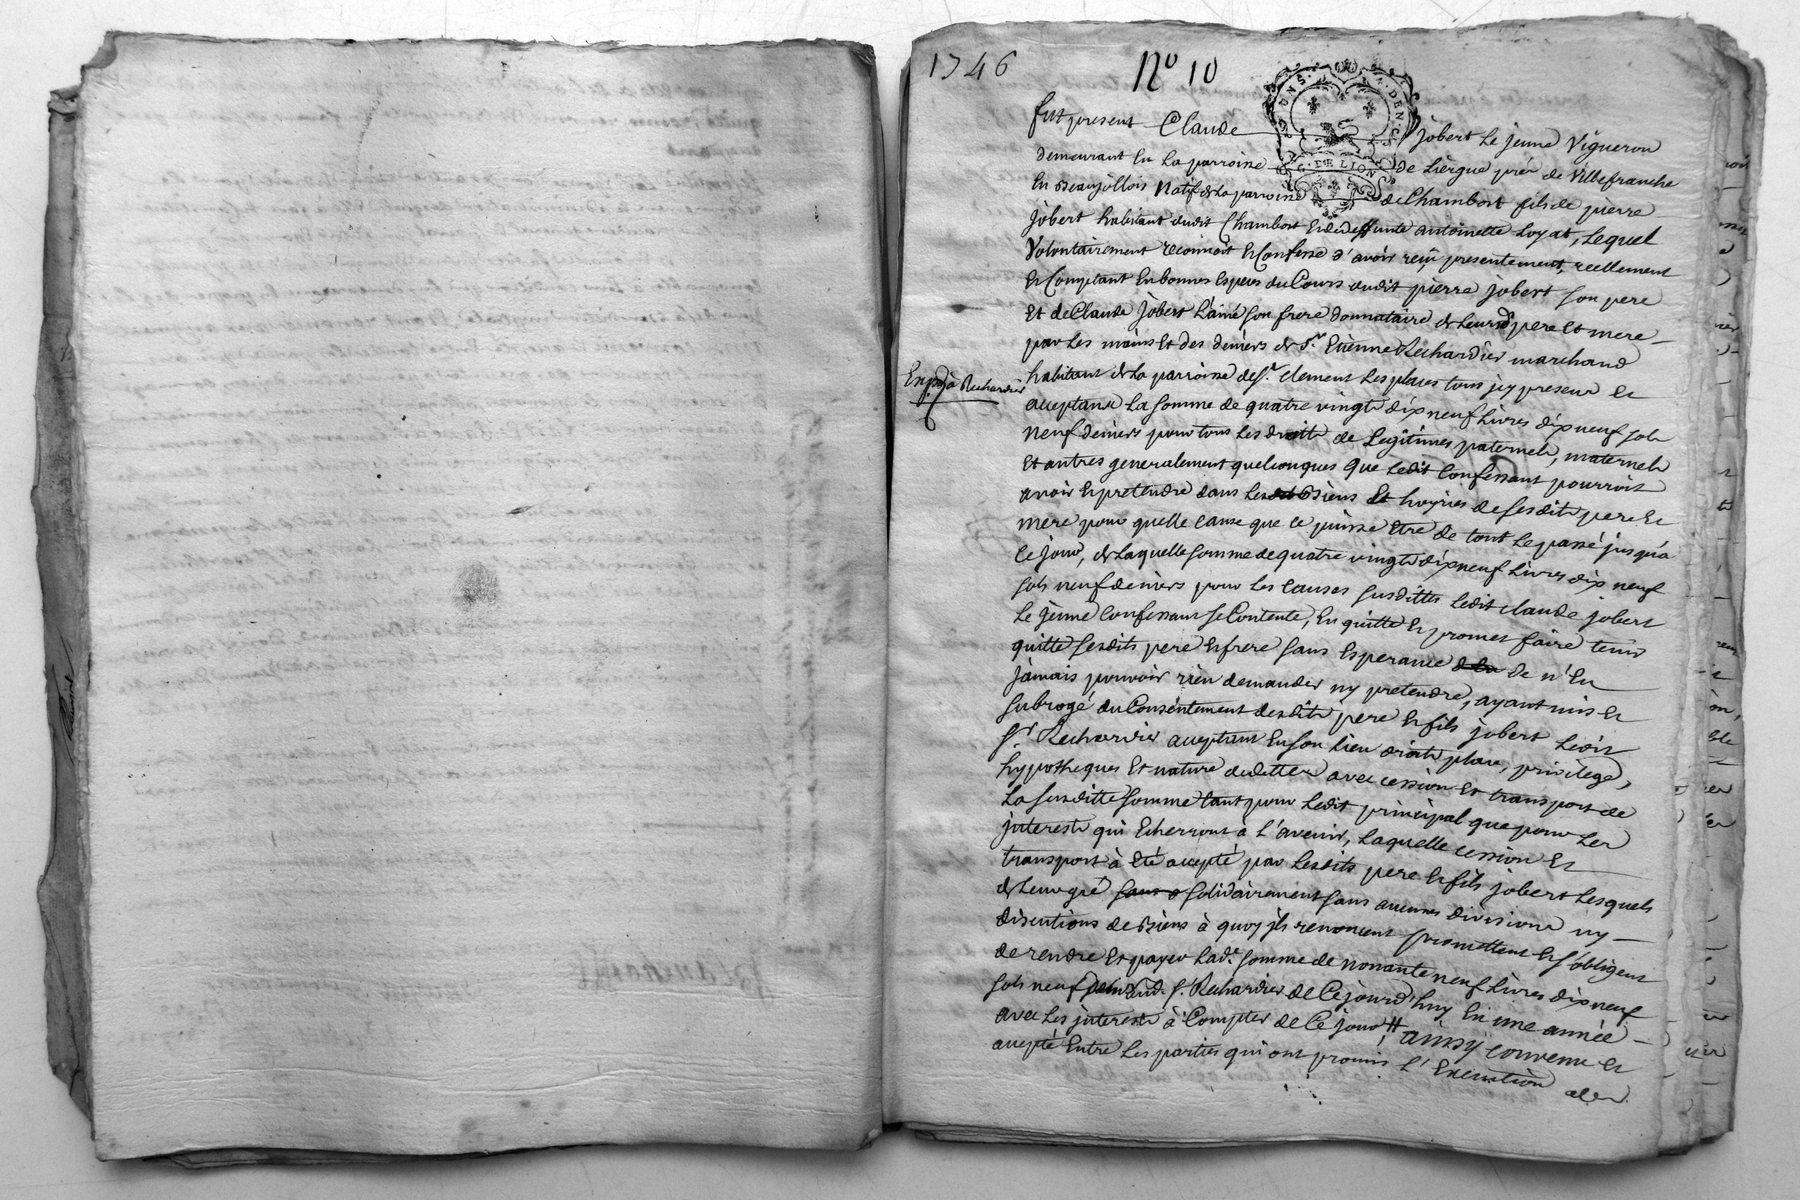 1746
No 10
GENS. DEN.
G. DE LION
fut present Claude jobert le jeune Vigneron
demeurant en la parroisse de Liergue prés de Villefranche
en Beaujollois natif de la parroisse de Chambost fils de pierre
jobert habitant dudit Chambost et de deffunte antoinette Loyat, Lequel
Volontairement reconnoit et Confesse d'avoir reçu presentement, reellement
et Comptant en bonnes Especes du Cours dudit pierre jobert son pere
Et de Claude jobert L'ainé son frere donnataire de leursd. pere et mere
par les mains et des deniers de Sr. Etienne Rechardier marchand
habitant de la parroisse de St. Clement Les places tous jcy present et
Exp. à Rechardier
acceptans la somme de quatre vingts dix neuf Livres dix neuf sols
neuf deniers pour tous les droits de Legitimes paternels, maternels
Et autres generalement quelconques que ledit Confessant pourroit
avoir et pretendre dans les biens et hoyries desesdits pere et
mere pour quelle cause que ce puisse etre de tout le passé jusqu'a
ce jour, de laquelle somme de quatre vingts dix neuf Livres dix neuf
sols neuf deniers pour les causes susdittes ledit Claude jobert
le jeune Confessant se Contente, en quitte et promet faire tenir
quitte sesdits pere et frere sans Esperance de n'en
jamais pouvoir rien demander ny pretendre, ayant mis et
subrogé du Consentement desdits pere et fils jobert ledit
Sr. Rechardier acceptant en son lieu droits place, privilege,
hypotheques Et nature dedettes avec cession et transport de
la susditte somme tant pour ledit principal que pour les
jnterests qui Echerront à l'avenir, laquelle cession et
transport à eté accepté par lesdits pere et fils jobert lesquels
de leur gré solidairement sans aucunes divisions ny
discutions de Biens à quoy jls renoncent promettent et s'obligent
de rendre Et payer lad. somme de nonante neuf Livres dix neuf
sols neuf den. aud. Sr. Rechardier de Cejourd'huy en une année
avec les jnterests à Compter de Ce jour # ainsy convenu et
accepté Entre les parties qui ont promis l'Execution